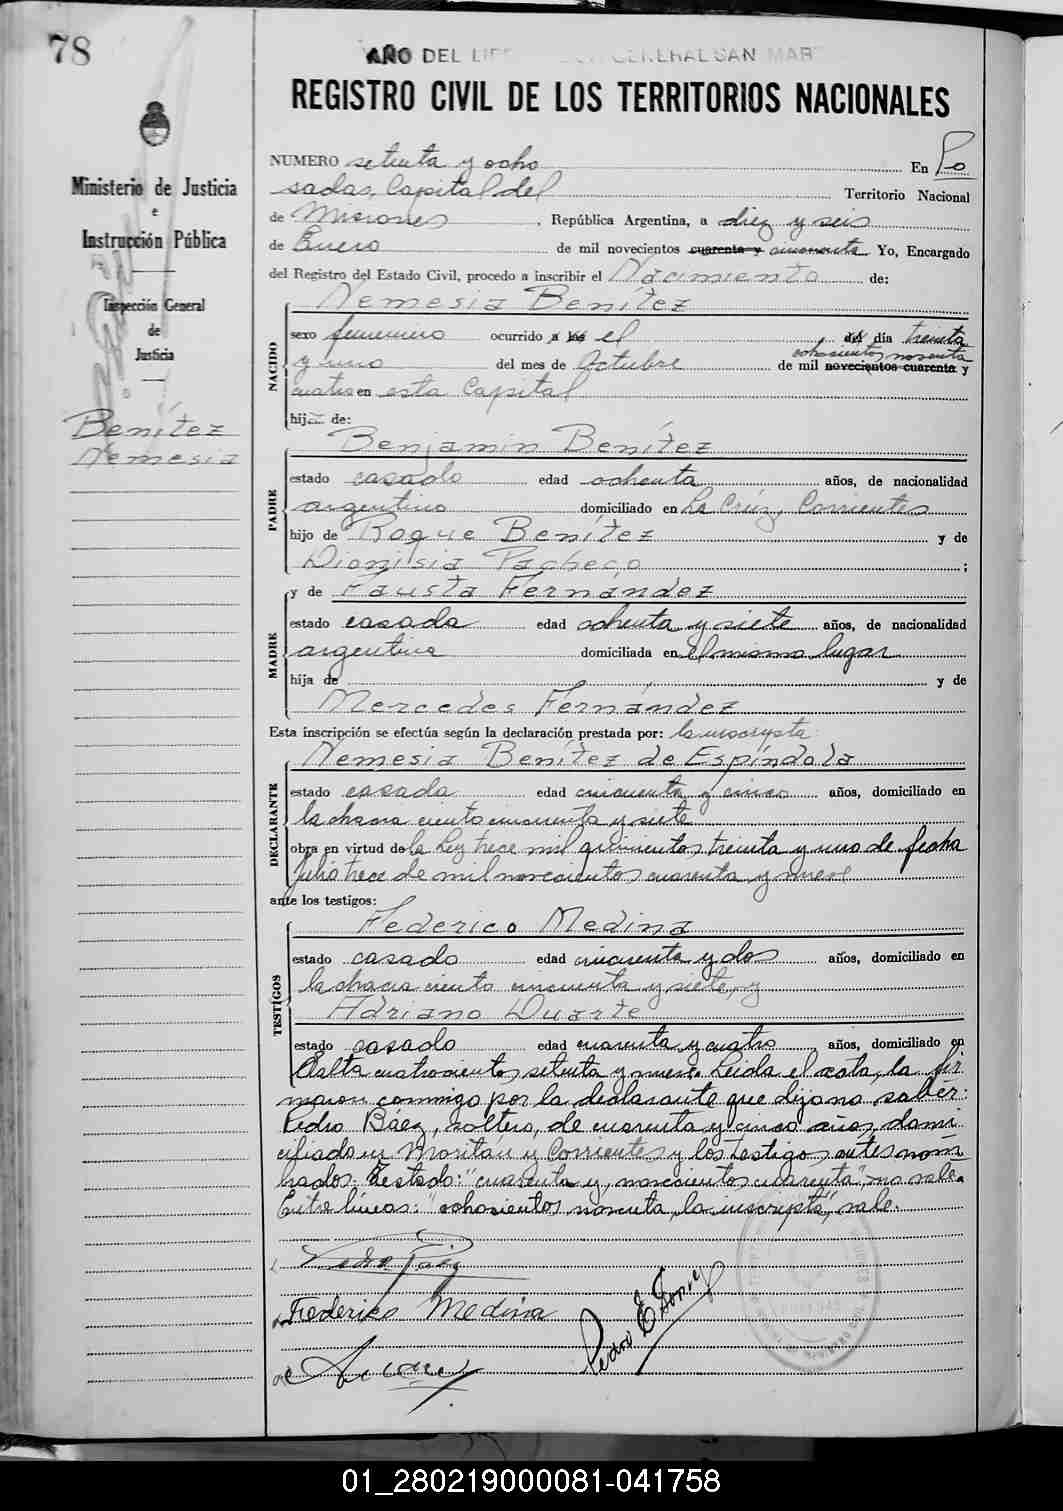 78
AÑO DEL LIB GENERAL SAN MAR
REGISTRO CIVIL DE LOS TERRITORIOS NACIONALES
Ministerio de Justicia
e
Instrucción Pública
Inspección General
de
Justicia
Benítez
Nemesia
NUMERO setenta y ocho En Po
sadas, Capital del Territorio Nacional
de Misiones, República Argentina, a diez y seis
de Enero de mil novecientos cuarenta y cincuenta Yo, Encargado
del Registro del Estado Civil, procedo a inscribir el Nacimiento de:
NACIDO
Nemesia Benítez
sexo femenino ocurrido a las el del día treinta
y uno del mes de Octubre de mil novecientos cuarenta y
ochocientos noventa
cuatro en esta Capital
hija de:
PADRE
Benjamin Benítez
estado casado edad ochenta años, de nacionalidad
argentino domiciliado en La Crúz, Corrientes
hijo de Roque Benítez y de
Dionisia Pacheco ;
MADRE
y de Fausta Fernández
estado casada edad ochenta y siete años, de nacionalidad
argentina domiciliada en el mismo lugar
hija de y de
Mercedes Fernández
Esta inscripción se efectúa según la declaración prestada por: la inscripta
DECLARANTE
Nemesia Benítez de Espíndola
estado casada edad cincuenta y cinco años, domiciliado en
la chacra ciento cincuenta y siete
obra en virtud de la Ley trece mil quinientos treinta y uno de fecha
Julio trece de mil novecientos cuarenta y nueve
ante los testigos:
TESTIGOS
Federico Medina
estado casado edad cincuenta y dos años, domiciliado en
la chacra ciento cincuenta y siete, y
Adriano Duarte
estado casado edad cuarenta y cuatro años, domiciliado en
Salta cuatrocientos setenta y nueve. Leida el acta, la fir
maron conmigo por la declarante que dijo no saber:
Pedro Báez, soltero, de cuarenta y cinco años, domi
ciliado en Moritán y Corrientes y los testigos antes nom
brados. Testado: "cuarenta y, novecientos cuarenta", no vale.
Entre lineas: "ochocientos noventa, la inscripta", vale.
Pedro Báez
Federico Medina
Pedro E
01_280219000081-041758